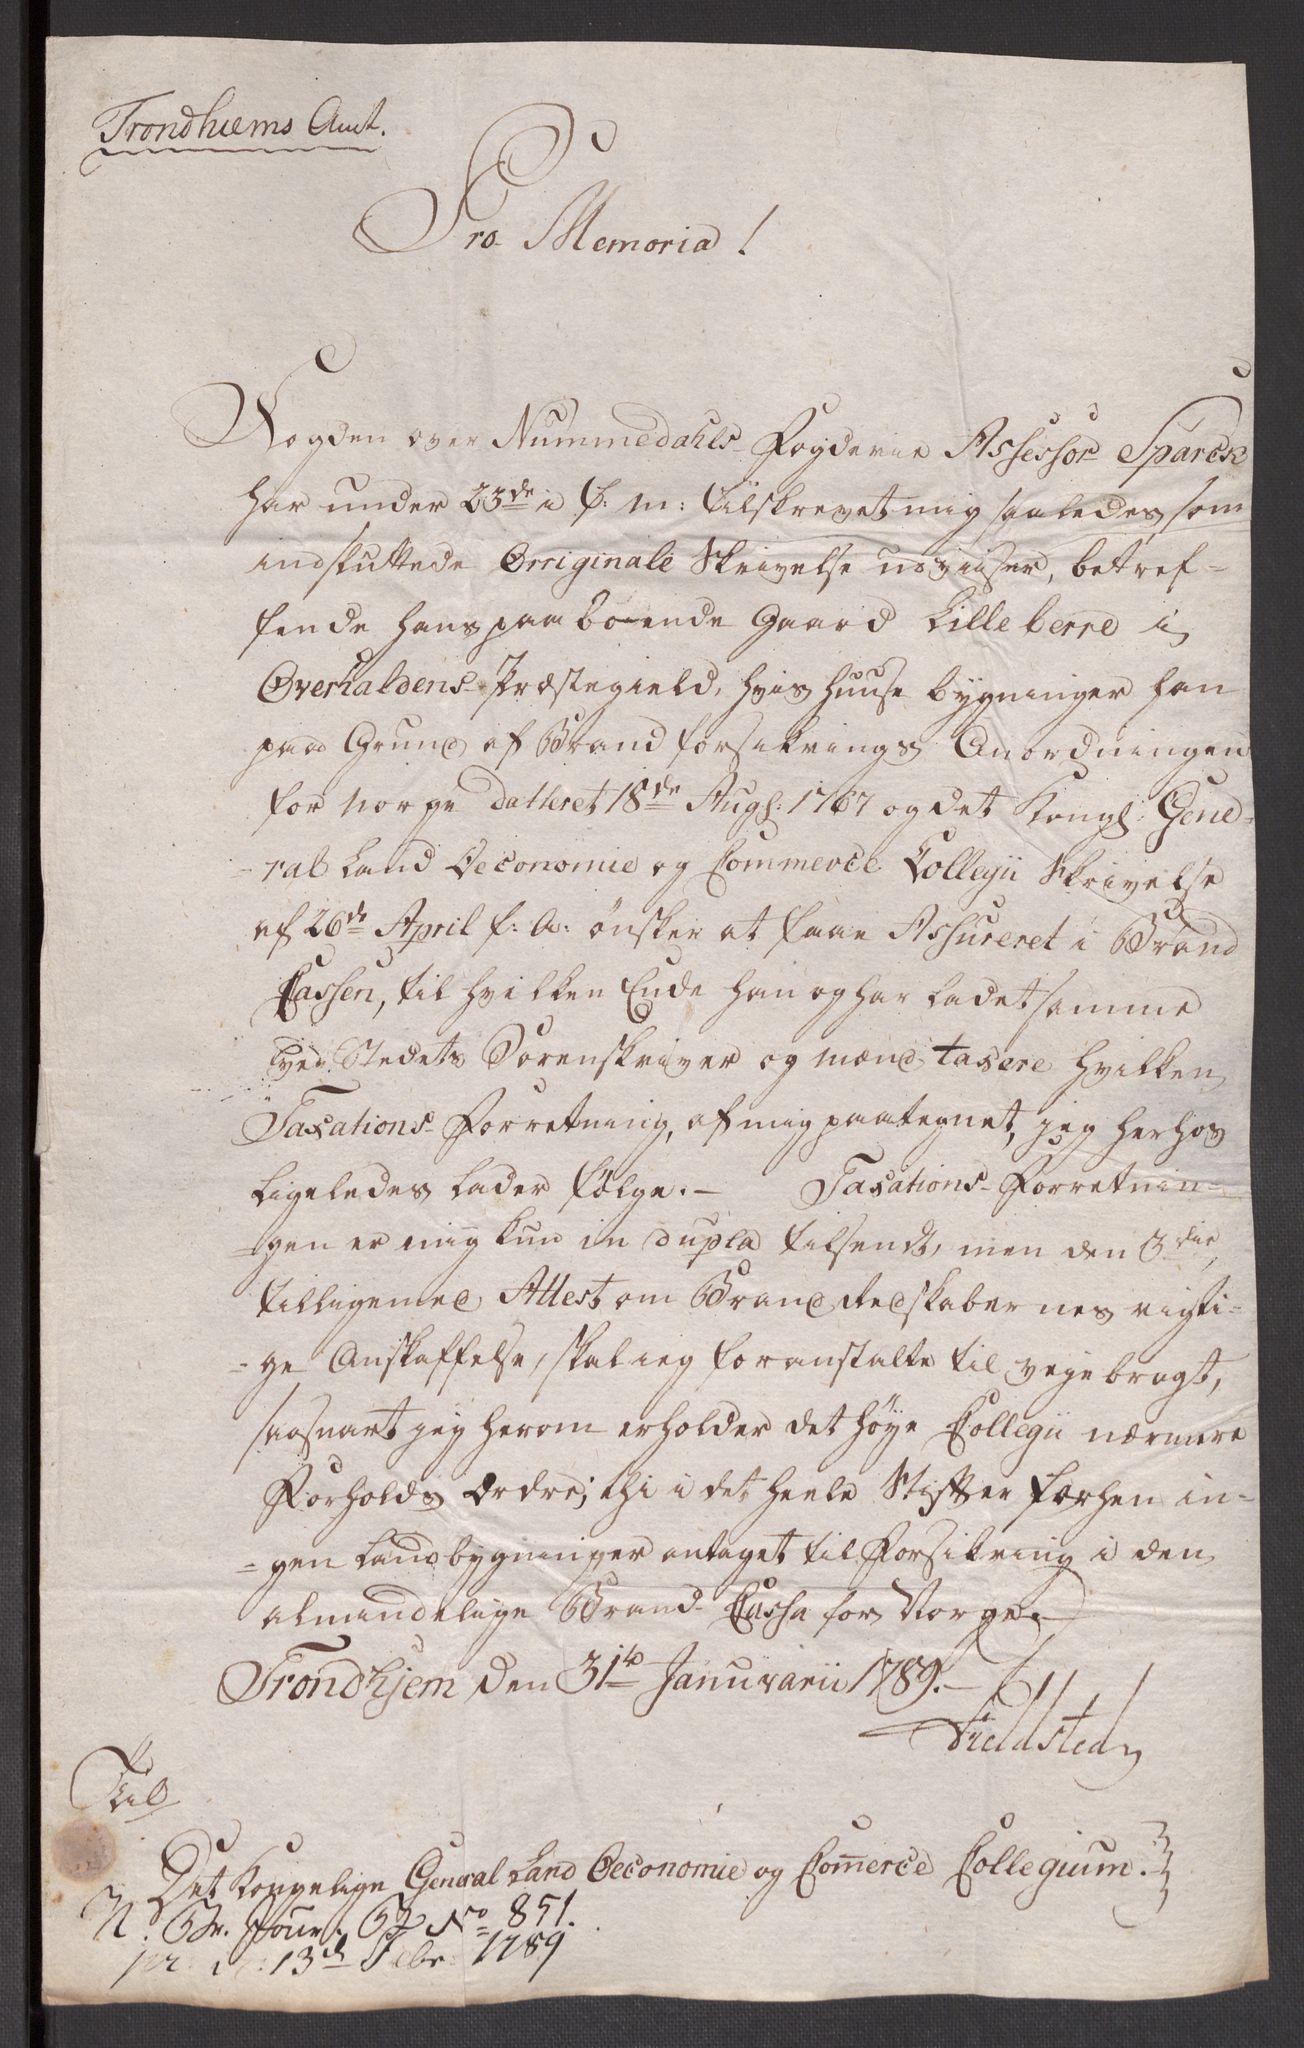 Trondhiems Amt.
Pro Memoria!
Fogden over Nummedahls Fogderie Assessor Sparck
har under 23de i f: m: tilskrevet mig saaledes, som
indsluttede Orriginale Skrivelse udviiser, betref-
fende hans paaboende Gaard Lille berre i
Overhaldens Præstegield, hvis Huuse bygninger han
paa Grund af Brand forsikrings Anordningen
for Norge datteret 18de Augs: 1767 og det Kongl: Gene-
-ral Land Oeconomie og Commerce Collegii Skrivelse
af 26de April f: A: ønsker at faae Assureret i Brand
Cassen, til hvilken Ende han og har ladet samme
ved Stedets Sorenskriver og mænd taxere hvilken
Taxations-Forretning, af mig paategnet, jeg herhos
ligeledes lader følge.- Taxations-Forretnin-
-gen er mig kun in dupla tilsendt, men den 3die,
tilligemed Attest om Brandredskabernes rigti-
-ge Anskaffelse, skal ieg foranstalte til veje bragt,
saasnart jeg herom erholder det høye Collegii nærmere
Forholds Ordre; thi i det heele Stift er forhen in-
-gen Landbygninger antaget til Forsikring i den
almindelige Brand-Cassa for Norge.-
Trondhjem den 31te Januvarii 1789.-
Fieldsted
Til
Det Kongelige General Land Oeconomie og Commerce Collegium.
N. Br. Jour: No 851.
pr: d: 13d Febr: 1789